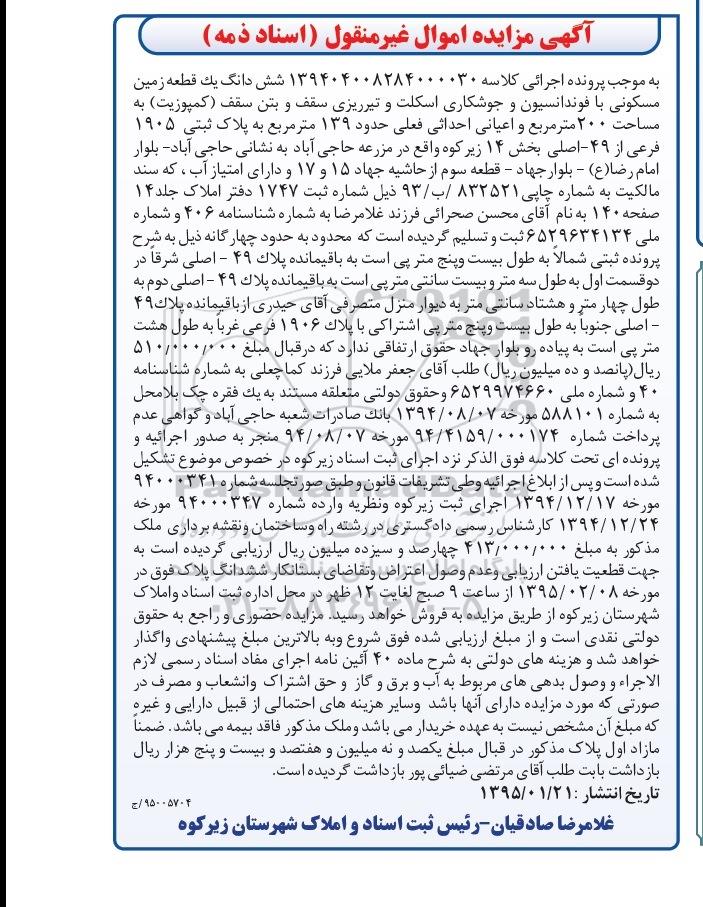 آگهی مزایده اموال غیرمنقول (اسناد ذمه)
به موجب پرونده اجرائی کلاسه ۱۳۹۴۰۴۰۰۸۲۸۴۰۰۰۰۳۰ شش دانگ یك قطعه زمین
مسکونی با فوندانسیون و جوشکاری اسکلت و تیرریزی سقف و بتن سقف (کمپوزیت) به
مساحت ۲۰۰مترمربع و اعیانی احداثی فعلی حدود ۱۳۹ مترمربع به پلاک ثبتی ۱۹۰۵
فرعی از ۴۹-اصلی بخش ۱۴ زیرکوه واقع در مزرعه حاجی آباد به نشانی حاجی آباد- بلوار
امام رضا(ع) - بلوار جهاد - قطعه سوم از حاشیه جهاد ۱۵ و ۱۷ و دارای امتیاز آب ، که سند
مالکیت به شماره چاپی۸۳۲۵۲۱ /ب/۹۳ ذیل شماره ثبت ۱۷۴۷ دفتر املاک جلد۱۴
صفحه۱۴۰ به نام آقای محسن صحرائی فرزند غلامرضا به شماره شناسنامه ۴۰۶ و شماره
ملی ۶۵۲۹۶۳۴۱۳۴ثبت و تسلیم گردیده است که محدود به حدود چهارگانه ذیل به شرح
پرونده ثبتی شمالاً به طول بیست وپنج متر پی است به باقیمانده پلاك ۴۹ - اصلی شرقاً در
دوقسمت اول به طول سه متر و بیست سانتی متر پی است به باقیمانده پلاك ۴۹ - اصلی دوم به
طول چهار متر و هشتاد سانتی متر به دیوار منزل متصرفی آقای حیدری از باقیمانده پلاك۴۹
- اصلی جنوباً به طول بیست وپنج متر پی اشتراکی با پلاك ۱۹۰۶ فرعی غرباً به طول هشت
متر پی است به پیاده رو بلوار جهاد حقوق ارتفاقی ندارد که درقبال مبلغ ۵۱۰/۰۰۰/۰۰۰
ریال(پانصد و ده میلیون ریال) طلب آقای جعفر ملایی فرزند کماچعلی به شماره شناسنامه
۴۰ و شماره ملی ۶۵۲۹۹۷۴۶۶۰ وحقوق دولتی متعلقه مستند به یك فقره چک بلامحل
به شماره ۵۸۸۱۰۱ مورخه ۱۳۹۴/۰۸/۰۷ بانك صادرات شعبه حاجی آباد و گواهی عدم
پرداخت شماره ۹۴/۴۱۵۹/۰۰۰۱۷۴ مورخه ۹۴/۰۸/۰۷ منجر به صدور اجرائیه و
پرونده ای تحت کلاسه فوق الذکر نزد اجرای ثبت اسناد زیرکوه در خصوص موضوع تشکیل
شده است و پس از ابلاغ اجرائیه وطی تشریفات قانون و طبق صورتجلسه شماره ۹۴۰۰۰۳۴۱
مورخه ۱۳۹۴/۱۲/۱۷ اجرای ثبت زیرکوه ونظریه وارده شماره ۹۴۰۰۰۳۴۷ مورخه
۱۳۹۴/۱۲/۲۴ کارشناس رسمی دادگستری در رشته راه وساختمان ونقشه برداری ملک
مذکور به مبلغ ۴۱۳/۰۰۰/۰۰۰ چهارصد و سیزده میلیون ریال ارزیابی گردیده است به
جهت قطعیت یافتن ارزیابی وعدم وصول اعتراض وتقاضای بستانکار ششدانگ پلاک فوق در
مورخه ۱۳۹۵/۰۲/۰۸ از ساعت ۹ صبح لغایت ۱۲ ظهر در محل اداره ثبت اسناد واملاک
شهرستان زیرکوه از طریق مزایده به فروش خواهد رسید. مزایده حضوری و راجع به حقوق
دولتی نقدی است و از مبلغ ارزیابی شده فوق شروع وبه بالاترین مبلغ پیشنهادی واگذار
خواهد شد و هزینه های دولتی به شرح ماده ۴۰ آئین نامه اجرای مفاد اسناد رسمی لازم
الاجراء و وصول بدهی های مربوط به آب و برق و گاز و حق اشتراک وانشعاب و مصرف در
صورتی که مورد مزایده دارای آنها باشد وسایر هزینه های احتمالی از قبیل دارایی و غیره
که مبلغ آن مشخص نیست به عهده خریدار می باشد وملک مذکور فاقد بیمه می باشد. ضمناً
مازاد اول پلاک مذکور در قبال مبلغ یکصد و نه میلیون و هفتصد و بیست و پنج هزار ریال
بازداشت بابت طلب آقای مرتضی ضیائی پور بازداشت گردیده است.
تاریخ انتشار :۱۳۹۵/۰۱/۲۱
۹۵۰۰۵۷۰۴/ج
غلامرضا صادقیان-رئیس ثبت اسناد و املاک شهرستان زیرکوه
ParsNamadData
۰۲۱-۸۸۳۴۹۶۷۰-۵